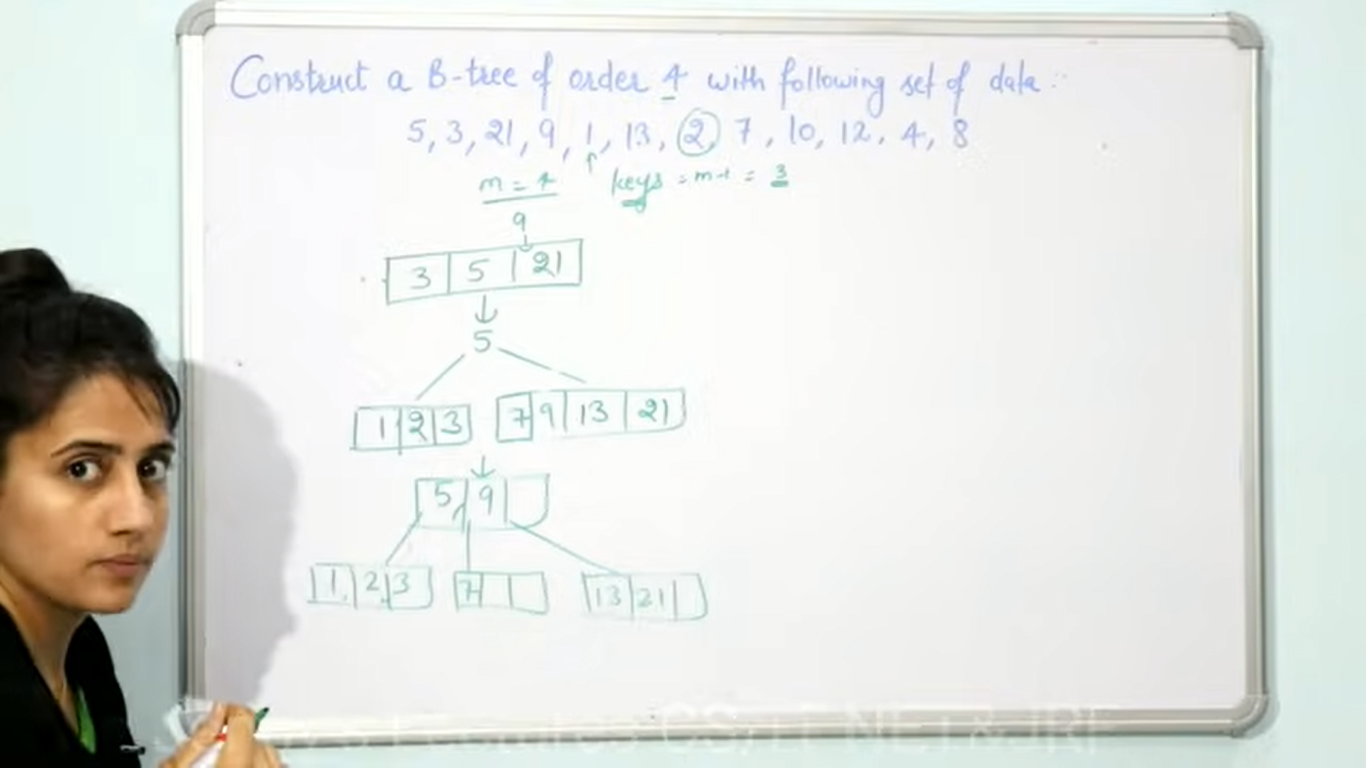 Construct a B-tree of order 4 with following set of data :-
5, 3, 21, 9, 1, 13, 2, 7, 10, 12, 4, 8
m = 4 keys = m-1 = 3
9
3 5 21
5
1 2 3 7 9 13 21
5 9
1 2 3 7 13 21